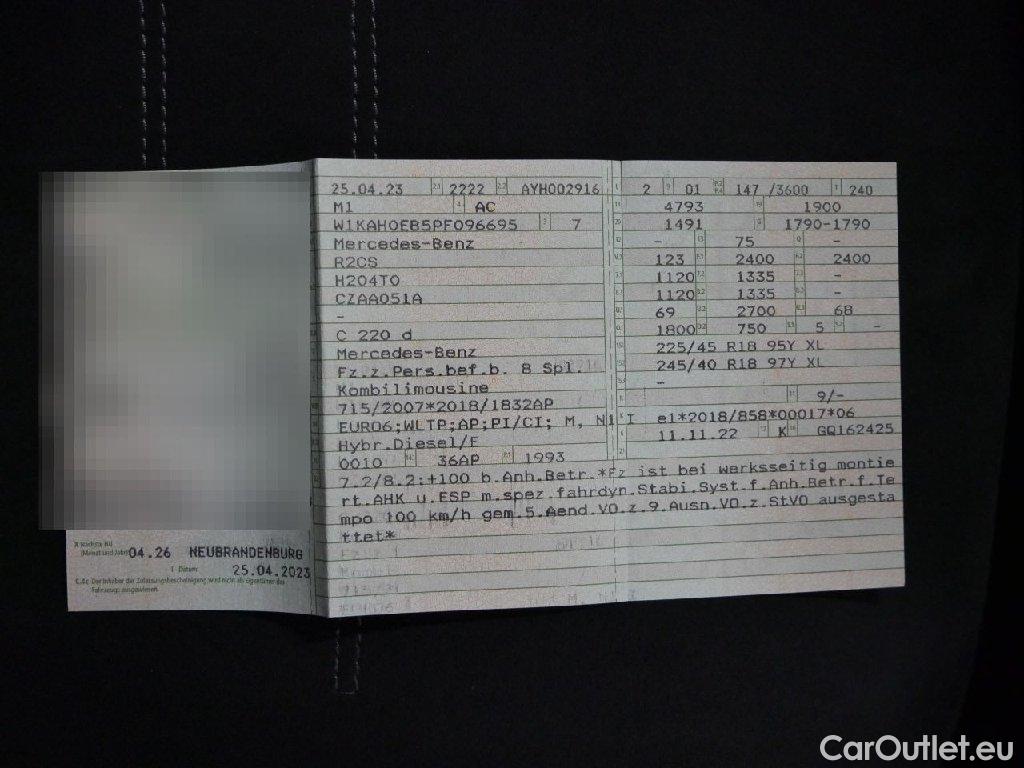 25.04.23 2222 AYH002916
M1 AC
W1KAH0EB5PF096695 7
Mercedes-Benz
R2CS
H204T0
CZAA051A
-
C 220 d
Mercedes-Benz
Fz.z.Pers.bef.b. 8 Spl.
Kombilimousine
715/2007*2018/1832AP
EURO6;WLTP;AP;PI/CI; M, N1 I
Hybr.Diesel/E
0010 36AP 1993
2 01 147 /3600 240
4793 1900
1491 1790-1790
- 75 -
123 2400 2400
1120 1335 -
1120 1335 -
69 2700 68
1800 750 5 -
225/45 R18 95Y XL
245/40 R18 97Y XL
-
9/-
e1*2018/858*00017*06
11.11.22 K GQ162425
7.2/8.2:+100 b.Anh.Betr.*Fz ist bei werksseitig montie
rt.AHK u.ESP m.spez.fahrdyn.Stabi.Syst.f.Anh.Betr.f.Te
mpo 100 km/h gem.5.Aend.VO.z.9.Ausn.VO.z.StVO ausgesta
ttet*
(Monat und Jahr) 04.26 NEUBRANDENBURG
I Datum: 25.04.2023
C.4c Der Inhaber der Zulassungsbescheinigung wird nicht als Eigentümer des
Fahrzeugs ausgewiesen.
CarOutlet.eu